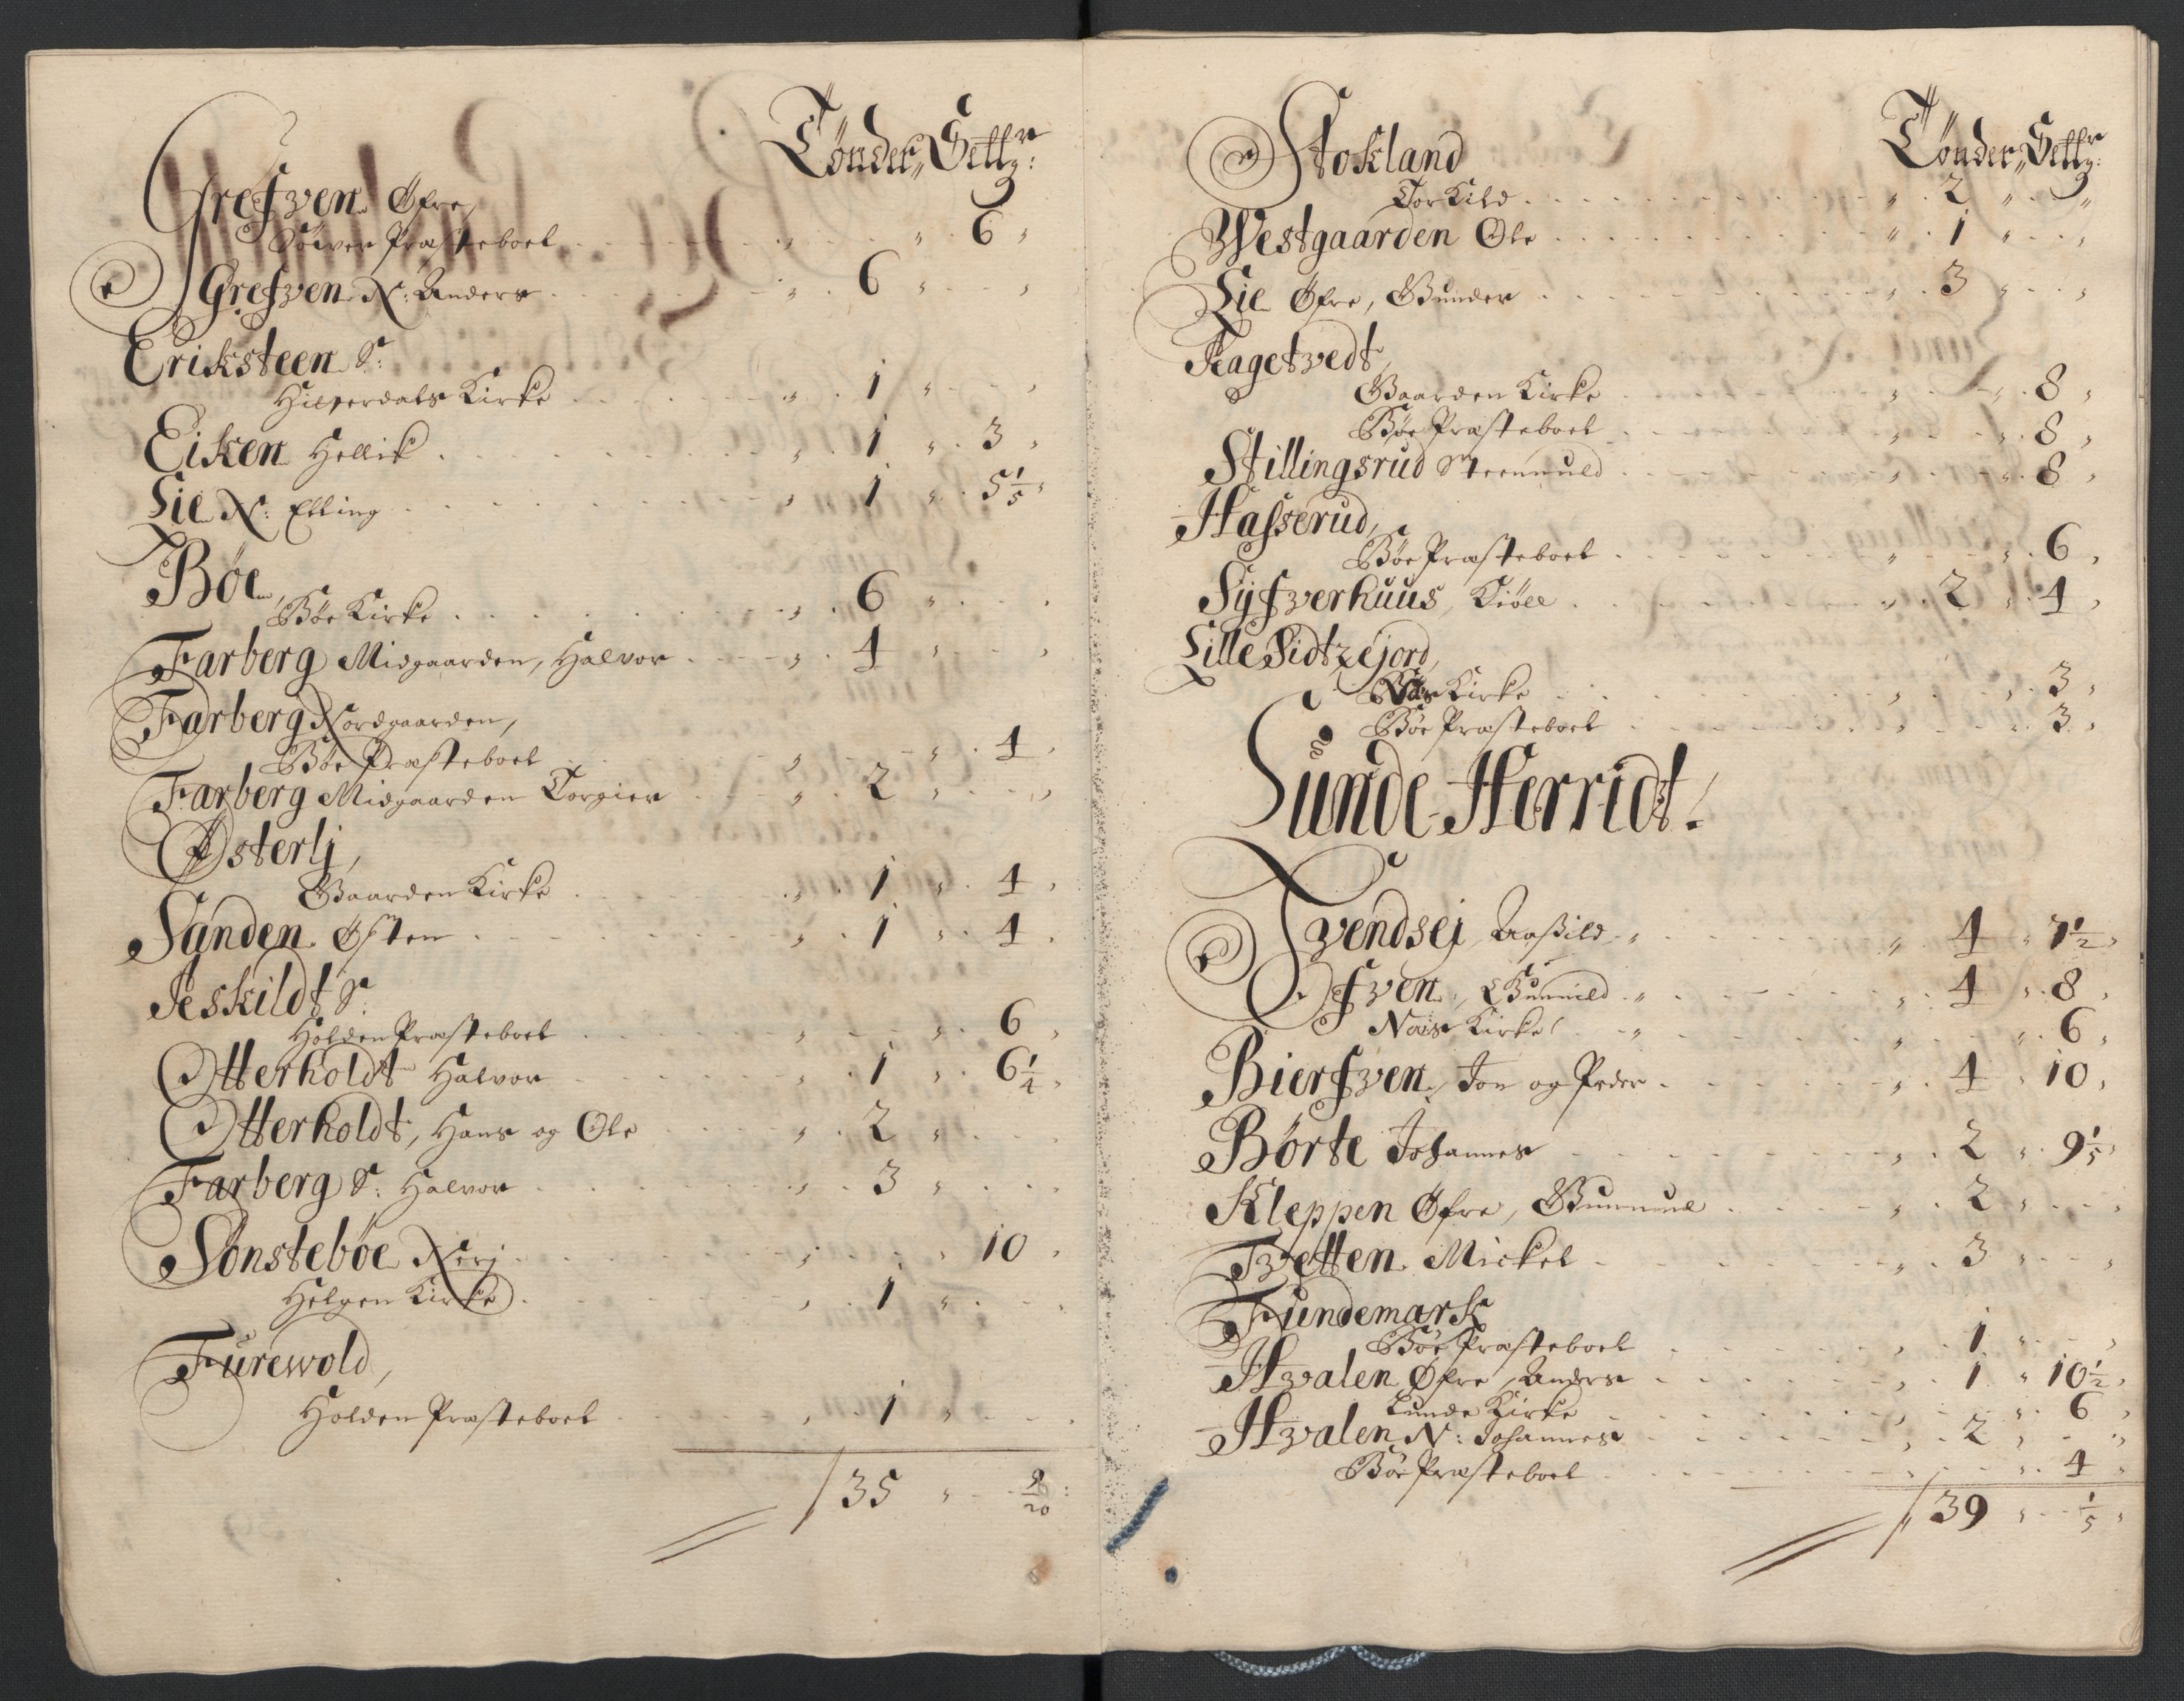 Tønder, Settr:
Grefven Øfre,
Præsteboel 6
Grefven N: Anders 6
Eriksteen S:
Hitterdals Kirke 1
Eiken Hellik 1 3
Lie N: Elling 1 5 1/5
Bøe,
Bøe Kirke 6
Farberg Midgaarden, Halvor 4
Farberg Nordgaarden,
Bøe Præsteboel 4
Farberg Midgaarden Torgier 2
Østerlj,
Gaarden Kirke 1 4
Sanden Østen 1 4
Jeskildt S:
Holden Præsteboel 6
Otterholdt Halvor 1 6 1/4
Otterholdt, Hans og Ole 2
Farberg S: Halvor 3
Sønstebøe Nerj 10
Helgen Kirke 1
Furewold,
Holden Præsteboel 1
35 9/20
Tønder, Settr:
Stokland
Torkild 2
Westgaarden Ole 1
Lie Øfre, Gunder 3
Hagetvedt,
Gaarden Kirke 8
Bøe Præsteboel 8
Stillingsrud Steennuld 8
Hasserud,
Bøe Præsteboel 6
Syfverhuus, Kiøll 2 4
Lille Sidtzejord,
Kirke 3
Bøe Præsteboel 3
Lunde Herridt!
Tvendsej Aaßild 4 7 1/2
Øfven, Gunnild 4 8
Næs Kirke 6
Bierfven, Jon og Peder 4 10
Børte Johannes 2 9 1/5
Kleppen Øfre, Gunnuul 2
Tvetten Mickel 3
Fundemark
Bøe Præsteboel 1
Hvalen Øfre Anders 1 10 1/2
Lunde Kirke 6
Hvalen N: Johannes 2
Bøe Præsteboel 4
39 1/5